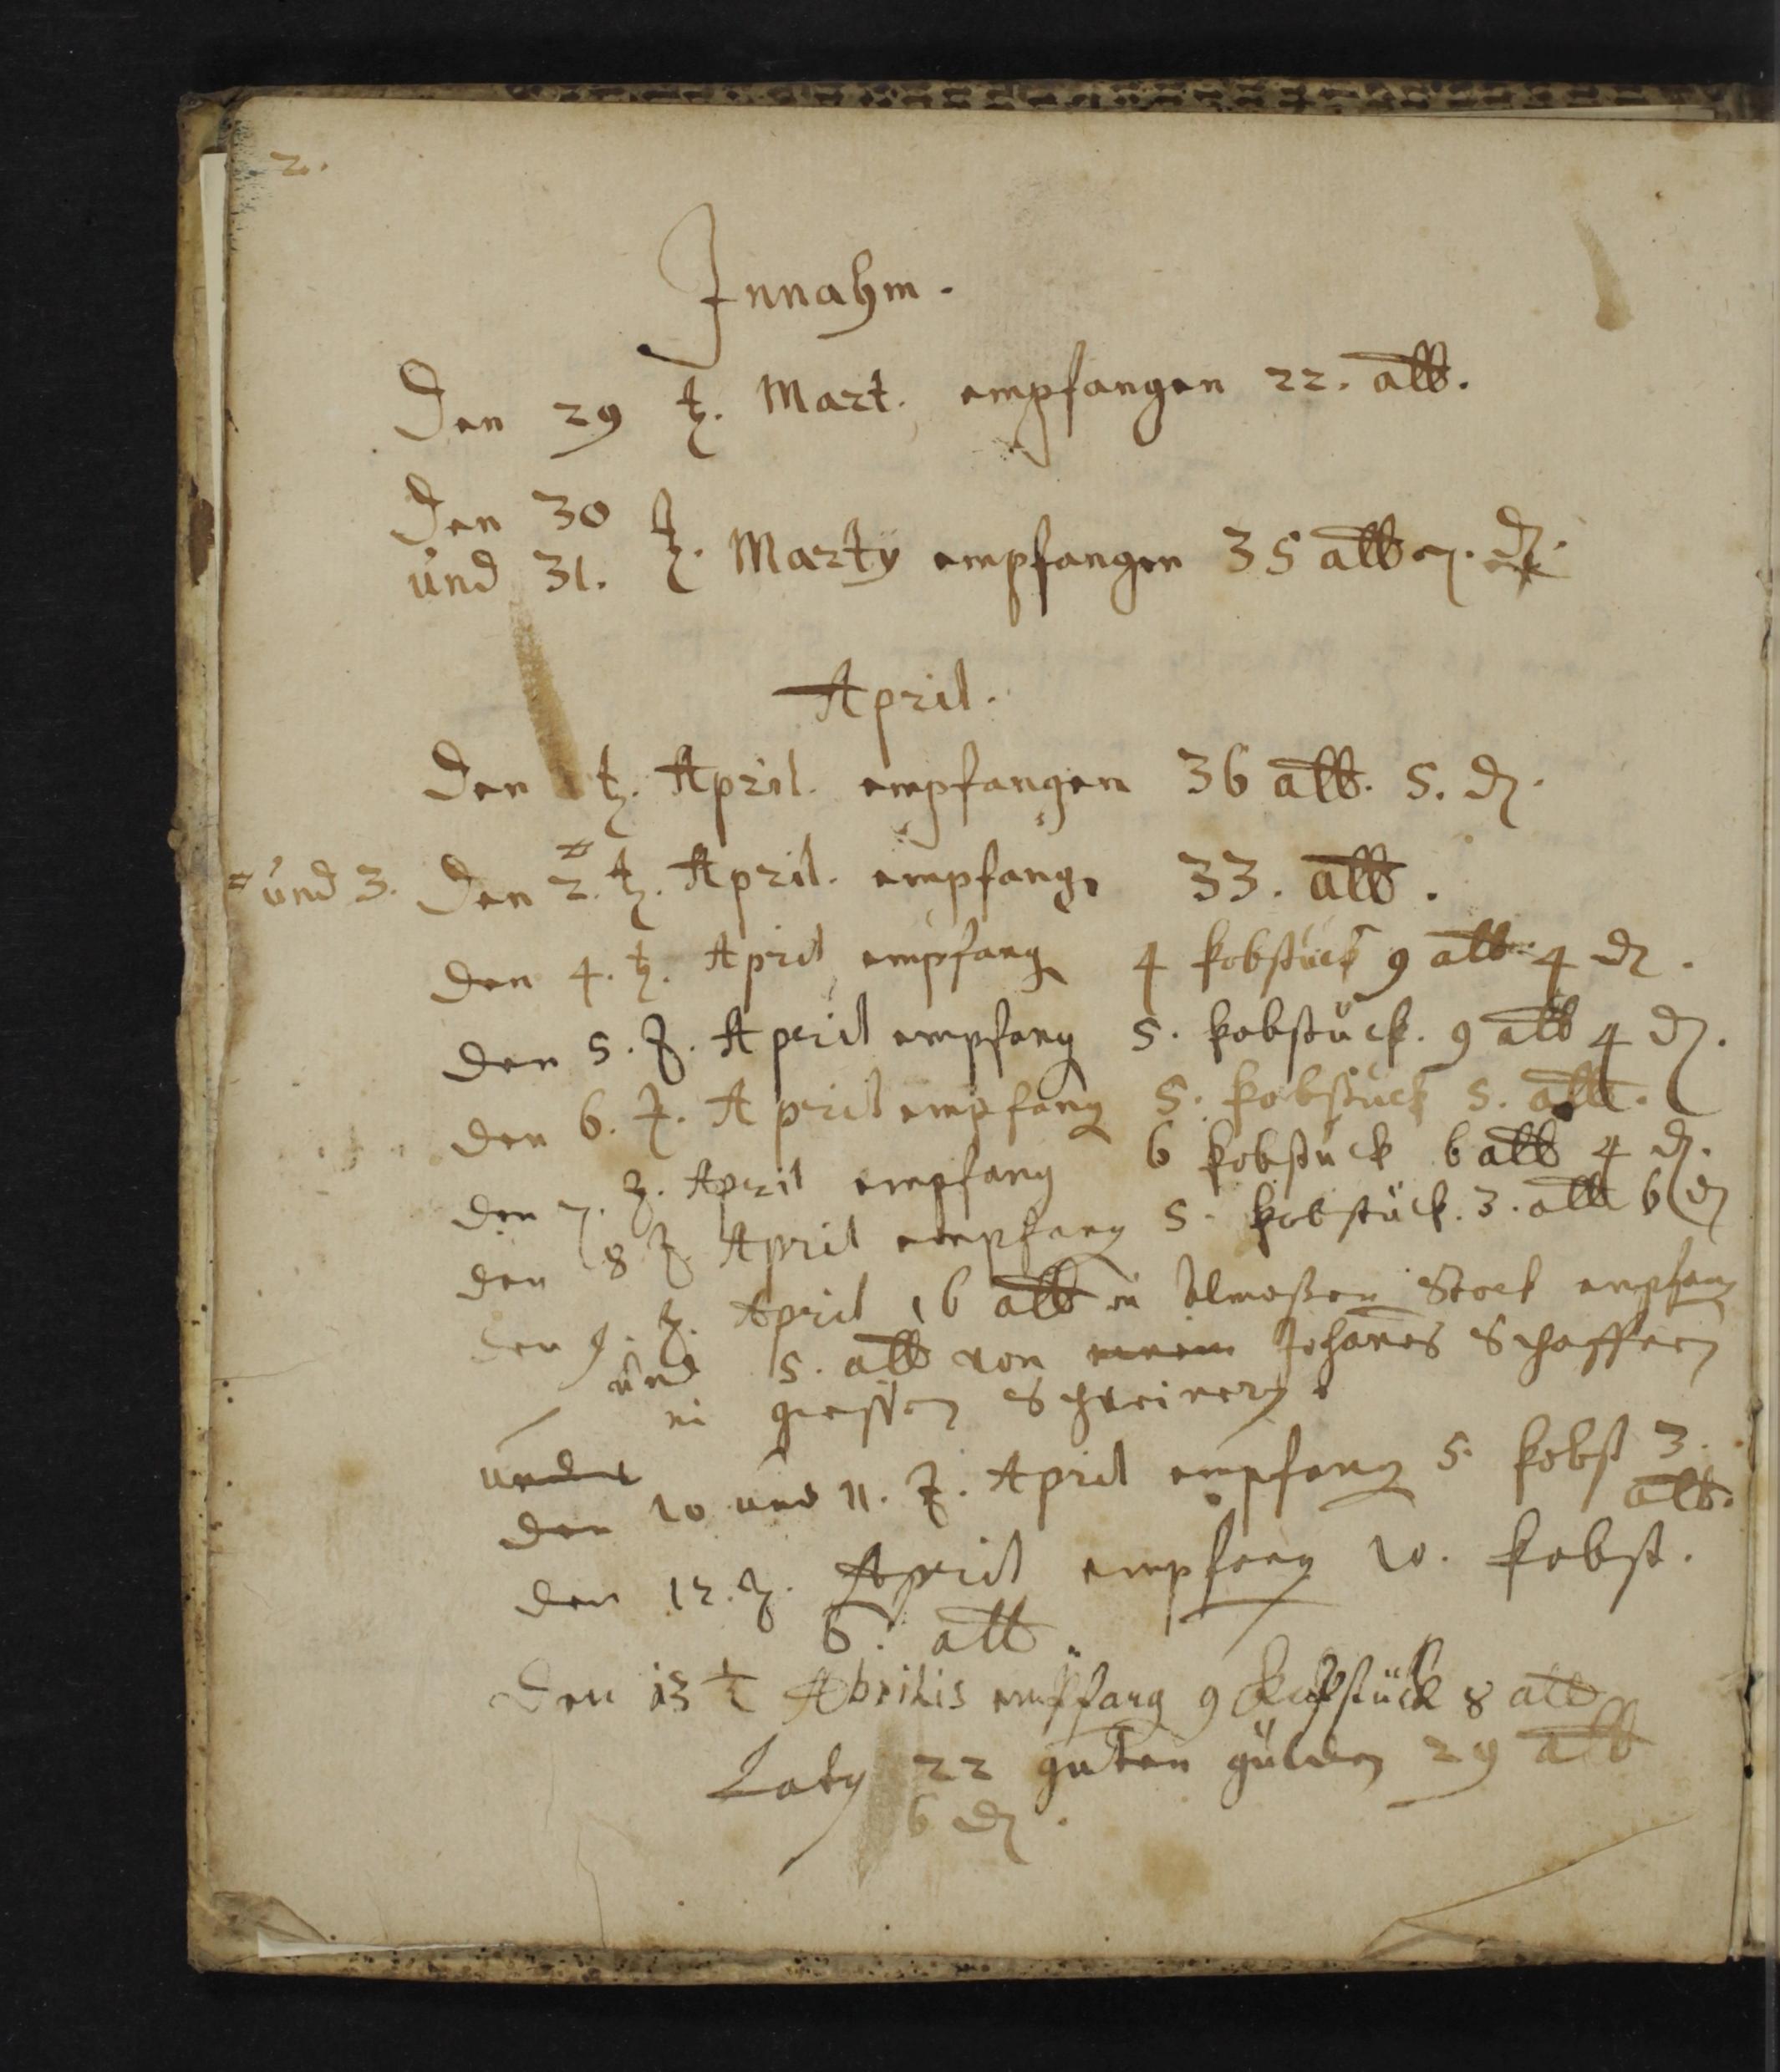 2.
Innahm.
Den 29 tz. Mart. empfangen 22. alb.
Den 30
und 31. tz. Marty empfangen 35 alb 7. d.
April.
Den 1 tz. April. empfangen 36 alb. 5. d.
und 3. Den 2. tz. April. empfang 33. alb.
den 4. tz. April empfang 4 kobstück 9 alb 4 d.
den 5. tz. April empfang 5. kobstück. 9 alb 4 d.
den 6. tz. April empfang 5. kobstück 5. alb.
den 7. tz. April empfang 6 kobstück 6 alb 4 d.
den 8 tz April empfang 5. kobstück. 3. alb 6 d
den 9. tz. April 16 alb in Almoßen Stock empfang
und 5. alb von Johanes Schaffern
in giessen Schreinern
den 10 und 11. tz. April empfang 5. kobst 3.
alb.
den 12. tz. April empfang 10. kobst.
6. alb.
Den 13 tz Abrilis empfang 9 Kobstück 8 alb
Laty 22 guten gülden 29 alb
6 d.